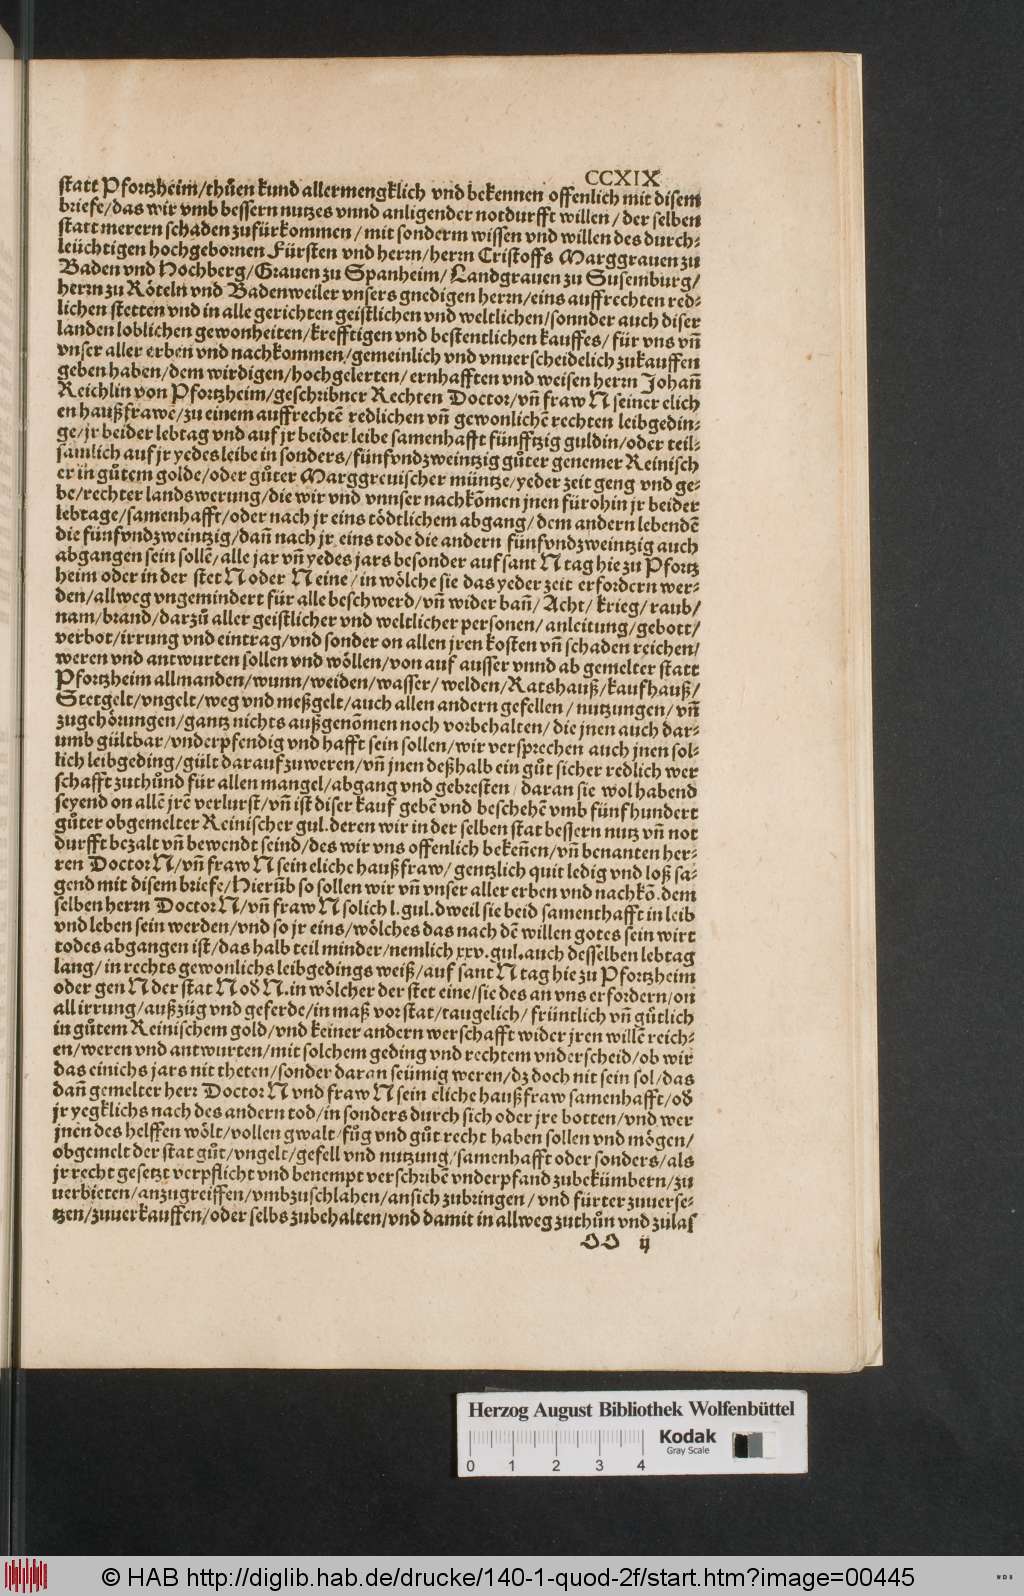 CCXIX
statt Pfortzheim/thuͤen kund allermengklich vnd bekennen offenlich mit disem
briefe/das wir vmb bessern nutzes vnnd anligender notdurfft willen/der selben
statt merern schaden zufürkommen/mit sonderm wissen vnd willen des durch⸗
leüchtigen hochgebornen Fürsten vnd herrn/herrn Cristoffs Marggrauen zu
Baden vnd Hochberg/Grauen zu Spanheim/Landgrauen zu Susemburg/
herrn zu Röteln vnd Badenweiler vnsers gnedigen herrn/eins auffrechten red⸗
lichen stetten vnd in alle gerichten geistlichen vnd weltlichen/sonnder auch diser
landen loblichen gewonheiten/krefftigen vnd bestentlichen kauffes/für vns vñ
vnser aller erben vnd nachkommen/gemeinlich vnd vnuerscheidelich zukauffen
geben haben/dem wirdigen/hochgelerten/ernhafften vnd weisen herrn Johañ
Reichlin von Pfortzheim/geschribner Rechten Doctor/vñ fraw N seiner elich
en haußfrawē/zu einem auffrechtē redlichen vñ gewonlichē rechten leibgedin⸗
ge/jr beider lebtag vnd auf jr beider leibe samenhafft fünfftzig guldin/oder teil⸗
samlich auf jr yedes leibe in sonders/fünfvndzweintzig guͦter genemer Reinisch
er in guͦtem golde/oder guͦter Marggreuischer müntze/yeder zeit geng vnd ge⸗
be/rechter landswerung/die wir vnd vnnser nachkōmen jnen fürohin jr beider
lebtage/samenhafft/oder nach jr eins tödtlichem abgang/dem andern lebendē
die fünfvndzweintzig/dañ nach jr eins tode die andern fünfvndzweintzig auch
abgangen sein sollē/alle jar vñ yedes jars besonder auf sant N tag hie zu Pfortz
heim oder in der stet N oder N eine/in wölche sie das yeder zeit erfordern wer⸗
den/allweg vngemindert für alle beschwerd/vñ wider bañ/Acht/krieg/raub/
nam/brand/darzuͦ aller geistlicher vnd weltlicher personen/anleitung/gebott/
verbot/irrung vnd eintrag/vnd sonder on allen jren kosten vñ schaden reichen/
weren vnd antwurten sollen vnd wöllen/von auf ausser vnnd ab gemelter statt
Pfortzheim allmanden/wunn/weiden/wasser/welden/Ratshauß/kaufhauß/
Stetgelt/vngelt/weg vnd meßgelt/auch allen andern gefellen/nutzungen/vñ
zugehörungen/gantz nichts außgenōmen noch vorbehalten/die jnen auch dar⸗
umb gültbar/vnderpfendig vnd hafft sein sollen/wir versprechen auch jnen sol⸗
lich leibgeding/gült darauf zuweren/vñ jnen deßhalb ein guͦt sicher redlich wer
schafft zuthuͦnd für allen mangel/abgang vnd gebresten/daran sie wol habend
seyend on allē jrē verlurst/vñ ist diser kauf gebē vnd beschehē vmb fünfhundert
guͦter obgemelter Reinischer gul.deren wir in der selben stat bessern nutz vñ not
durfft bezalt vñ bewendt seind/des wir vns offenlich bekeñen/vñ benanten her⸗
ren Doctor N/vñ fraw N sein eliche haußfraw/gentzlich quit ledig vnd loß sa⸗
gend mit disem briefe/Hierüb so sollen wir vñ vnser aller erben vnd nachkō.dem
selben herrn Doctor N/vñ fraw N solich l.gul.dweil sie beid samenthafft in leib
vnd leben sein werden/vnd so jr eins/wölches das nach dē willen gotes sein wirt
todes abgangen ist/das halb teil minder/nemlich xxv.gul.auch desselben lebtag
lang/in rechts gewonlichs leibgedings weiß/auf sant N tag hie zu Pfortzheim
oder gen N der stat N oď N.in wölcher der stet eine/sie des an vns erfordern/on
all irrung/außzüg vnd geferde/in maß vor stat/taugelich/früntlich vñ guͤtlich
in guͦtem Reinischem gold/vnd keiner andern werschafft wider jren willē reich⸗
en/weren vnd antwurten/mit solchem geding vnd rechtem vnderscheid/ob wir
das einichs jars nit theten/sonder daran seümig weren/dz doch nit sein sol/das
dañ gemelter herr Doctor N vnd fraw N sein eliche haußfraw samenhafft/oď
jr yegklichs nach des andern tod/in sonders durch sich oder jre botten/vnd wer
jnen des helffen wölt/vollen gwalt/fuͦg vnd guͦt recht haben sollen vnd mögen/
obgemelt der stat guͦt/vngelt/gefell vnd nutzung/samenhafft oder sonders/als
jr recht gesetzt verpflicht vnd benempt verschribē vnderpfand zubekümbern/zu
uerbieten/anzugreiffen/vmbzuschlahen/ansich zubringen/vnd fürter zuuerse⸗
tzen/zuuerkauffen/oder selbs zubehalten/vnd damit in allweg zuthuͦn vnd zulas
OO ij
Herzog August Bibliothek Wolfenbüttel
Kodak
Gray Scale
0 1 2 3 4
© HAB http://diglib.hab.de/drucke/140-1-quod-2f/start.htm?image=00445